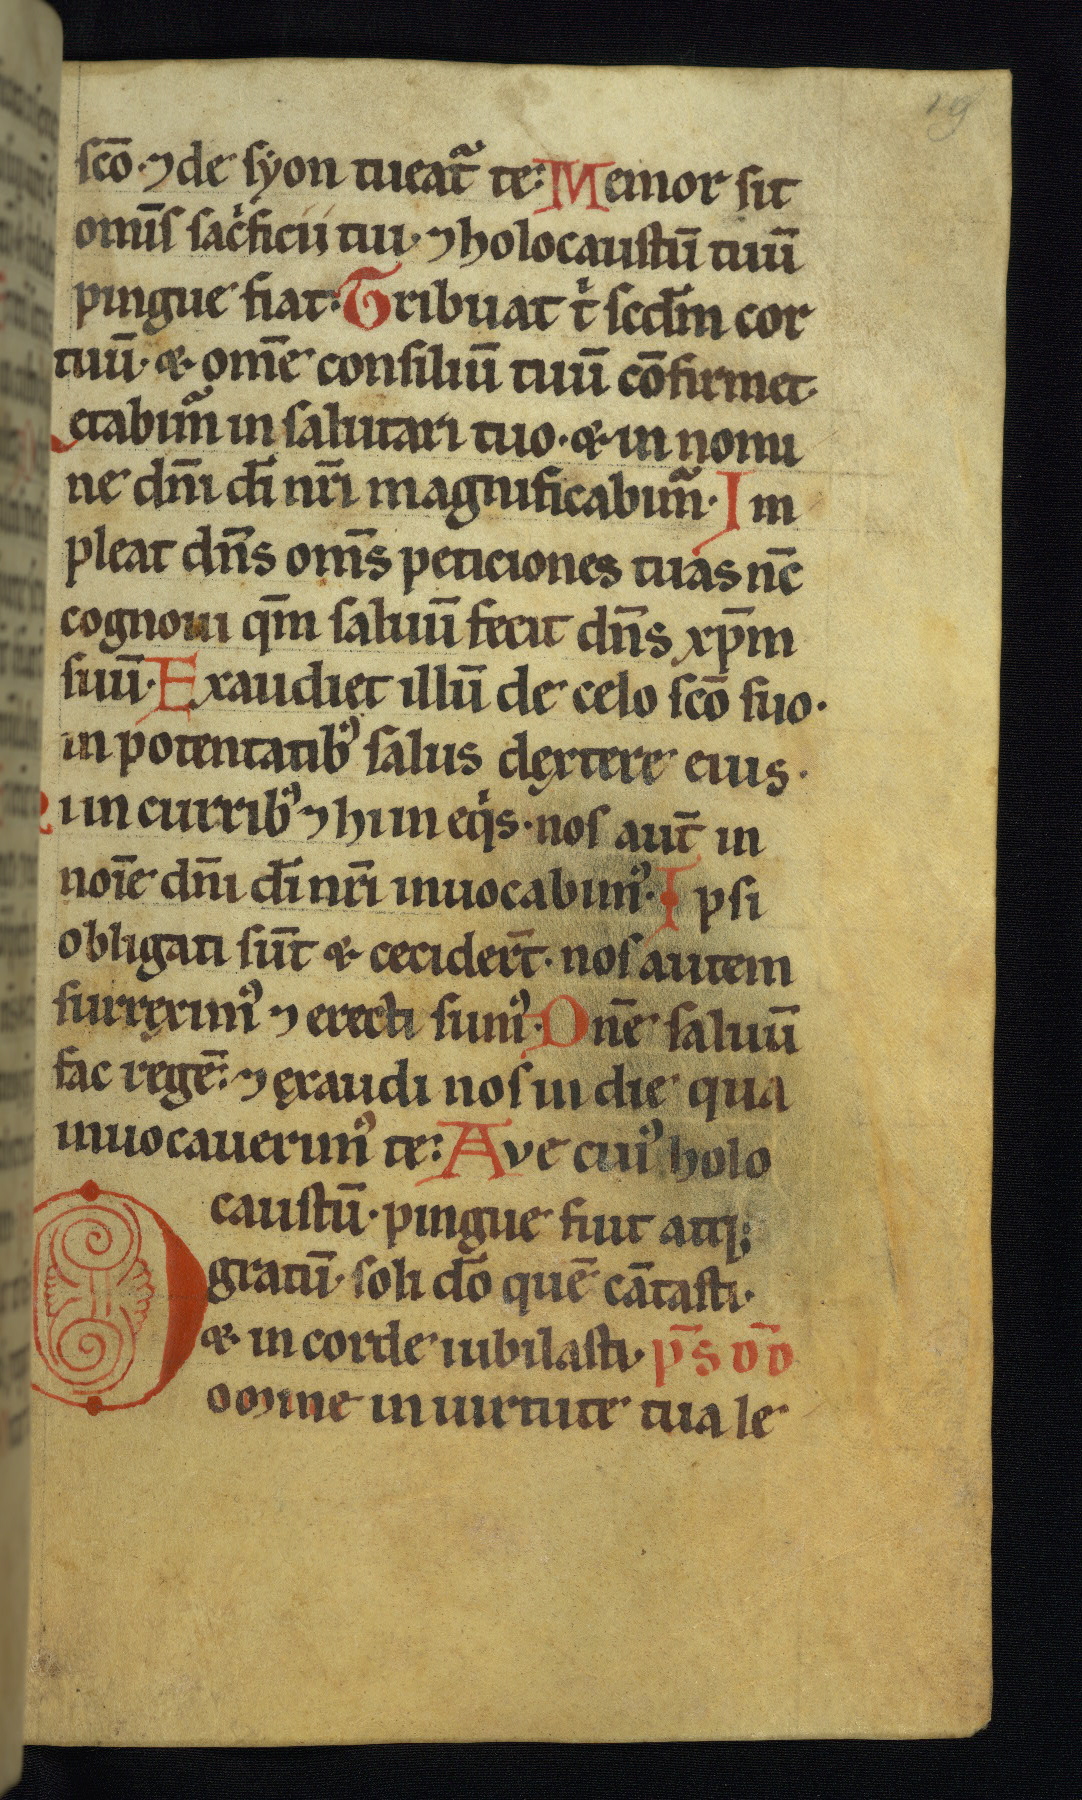 29
sc̄o. ⁊ de syon tueat᷑ te: Memor sit
omīs sac̍ficii tui. ⁊ holocaustū tuū
pingue fiat: Tribuat t̍ scd̄m cor
tuū. & om̄e consiliū tuū cōfirmet.
Letabim᷑ in salutari tuo. & in nomi
ne dn̄i dī nr̄i magnificabim᷑. Im
pleat dn̄s om̄s peticiones tuas nc̄
cognoui qm̄ saluū fecit dn̄s xp̄m
suū. Exaudiet illū de celo sc̄o suo.
in potentatibꝰ salus dextere eius.
Hii in curribꝰ ⁊ hii in eq̍s. nos aut̄ in
noīe dn̄i dī nr̄i inuocabimꝰ. Ipsi
obligati sūt & cecider̄t. nos autem
surreximꝰ ⁊ erecti sumꝰ. Dn̄e saluū
fac regē: ⁊ exaudi nos in die qua
inuocauerimꝰ te: Ave cuiꝰ holo
caustū. pingue fiut atq;
gratū. soli dō quē cātasti.
& in corde iubilasti. p̄s dd̄
Domine in uirtute tua le